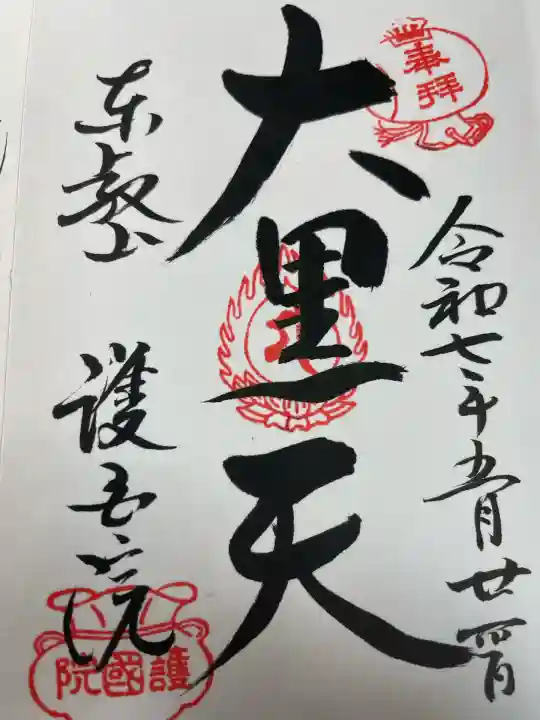 奉拝
令和七年五月廿四日
大黒天
東叡山
護国院
護國院